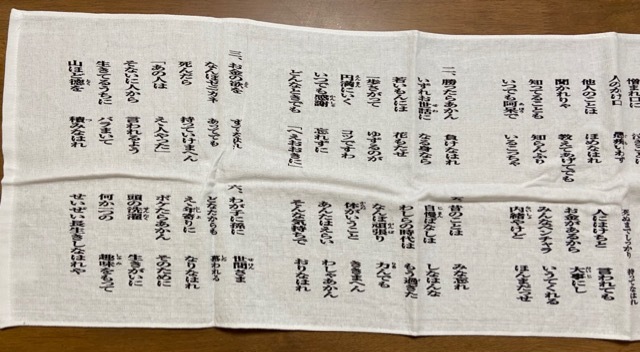 他人のことは ほめなはれ
聞かれりゃ 教えてあげてでも
知ってることも 知らんふり
いつでも阿呆で いるこっちゃ
二、勝たらあかん 負けなはれ
いずれお世話に なる身なら
若いもんには 花もたせ
一歩さがって ゆずるのが
円満にいく コツですわ
いつも感謝を 忘れずに
どんなときでも 「へえおおきに」
三、お金の欲を すてなはれ
なんぼゼニカネ あってでも
死んだら 持っていけまへん
「あの人は ええ人やった」
そないに人から 言われるよう
生きてるうちに バラまいて
山ほど徳を 積みなはれ
人にはけちと 言われても
お金があるから 大事にし
みんなベンチャラ いうてくれる
内緒やけど ほんまだっせ
昔のことは みな忘れ
自慢ばなしは しなはんな
わしらの時代は もう過ぎた
なんぼ頑張り 力んでも
体がいうこと ききまへん
あんたはえらい わしゃあかん
そんな気持ちで おりなはれ
六、わが子に孫に 世間さま
どなたからも 慕われる
ええ年寄りに なりなはれ
ボケたらあかん そのために
頭の洗濯 生きがいに
何か一つの 趣味をもって
せいぜい長生きしなはれや